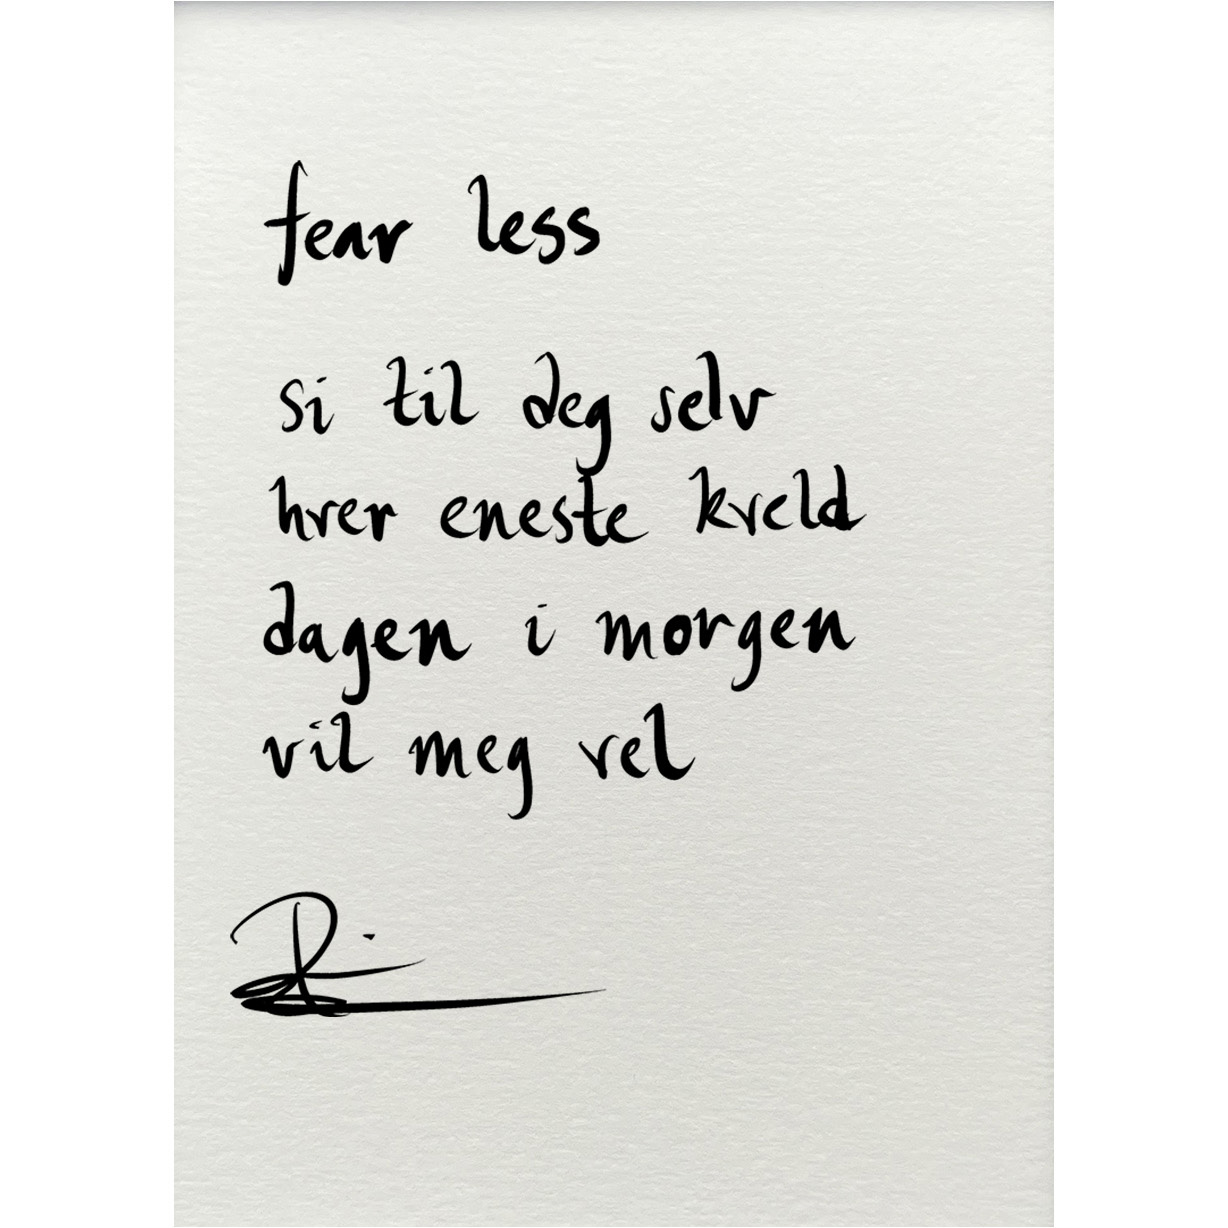 fear less
si til deg selv
hver eneste kveld
dagen i morgen
vil meg vel